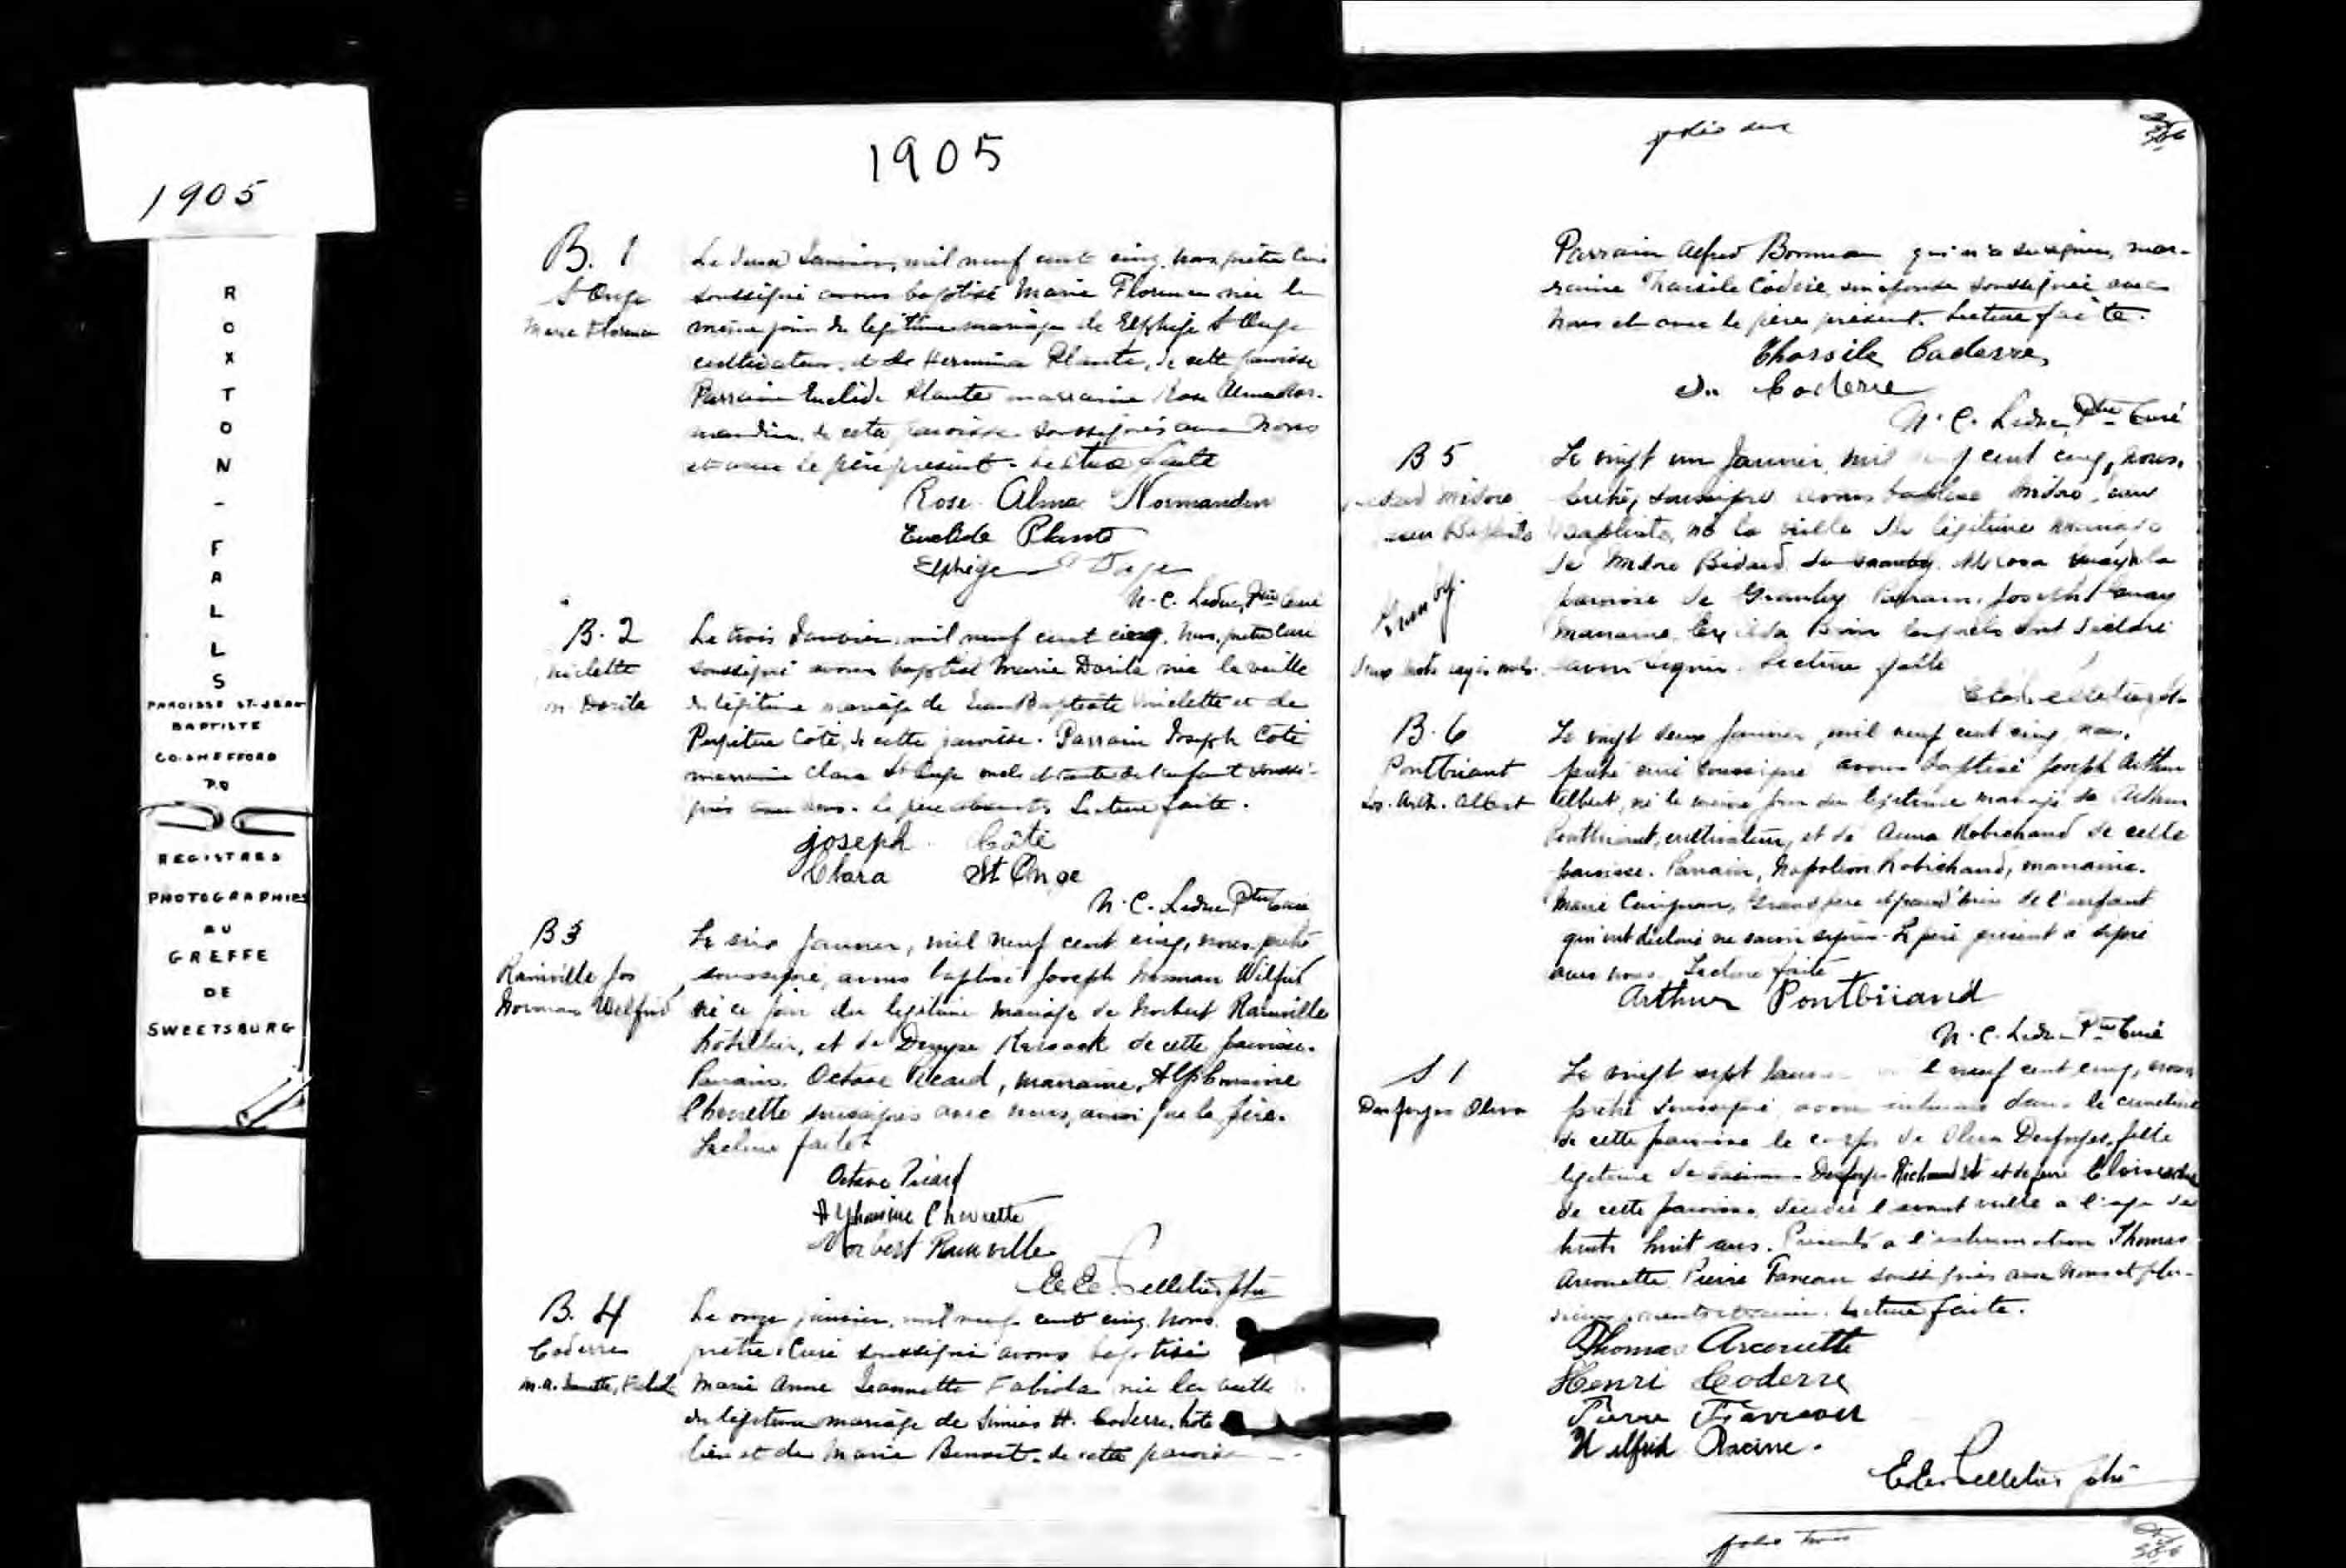 1905
ROXTON-FALLS
PAROISSE ST-JEAN
BAPTISTE
CO. SHEFFORD
P.Q.
REGISTRES
PHOTOGRAPHIES
AU
GREFFE
DE
SWEETSBURG
1905
B. 1
St Onge
Marie Florence
Le deux Janvier, mil neuf cent cinq, nous prêtre Curé
soussigné avons baptisé Marie Florence née le
même jour du légitime mariage de Elphège St Onge
cultivateur, et de Hermina Plante, de cette paroisse
Parrain Euclide Plante marraine Rose Alma Nor-
mandin, de cette paroisse soussignés avec nous
et avec le père présent. Lecture faite
Rose Alma Normandin
Euclide Plante
Elphège St Onge
N. C. Leduc, Ptre Curé
B. 2
Dorila
Le trois Janvier, mil neuf cent cinq, nous, prêtre Curé
soussigné avons baptisé Marie Dorila née la veille
du légitime mariage de Jean Baptiste et de
Côté, de cette paroisse. Parrain Joseph Côté
marraine Clara St Onge oncle et tante de l'enfant soussi-
gnés avec nous. Le père absent. Lecture faite.
Joseph Côté
Clara St Onge
N. C. Leduc Ptre Curé
B 3
Rainville Jos
Norman Wilfrid
Le six Janvier, mil neuf cent cinq, nous, prêtre
soussigné, avons baptisé Joseph Norman Wilfrid
né ce jour du légitime mariage de Norbert Rainville
hôtellier, et de de cette paroisse.
Parrain, Octave Picard, marraine, Alphonsine
Chouette soussignés avec nous, ainsi que le père.
Lecture faite.
Octave Picard
Alphonsine Chouette
Norbert Rainville
E. E. Pelletier ptre
B. 4
Coderre
M. A. Jeannette, Fabiola
Le onze janvier, mil neuf cent cinq, nous
prêtre Curé soussigné avons baptisé
Marie Anne Jeannette Fabiola née la veille
du légitime mariage de H. Coderre, hôte
lier et de Marie Benoit de cette paroisse
folio deux
Parrain Alfred qui n'a su signer, mar-
raine Tharsile Coderre, son épouse soussignée avec
nous et avec le père présent. Lecture faite.
Tharsile Coderre
Coderre
N. C. Leduc, Ptre Curé
B 5
Bédard Médore
Jean Baptiste
Granby
Le vingt un Janvier, mil neuf cent cinq, nous,
soussigné avons baptisé Médore, Jean
Baptiste, né la veille du légitime mariage
de Médore Bédard de la
paroisse de Granby Parrain, Joseph
marraine, lesquels ont déclaré
savoir signer. Lecture faite
E. E. Pelletier ptre
B. 6
Pontbriant
Jos. Arth. Albert
Le vingt deux Janvier, mil neuf cent cinq, nous,
prêtre curé soussigné avons baptisé Joseph Arthur
Albert, né le même jour du légitime mariage de Arthur
Pontbriant, cultivateur, et de Anna Robichaud de cette
paroisse. Parrain, Napoléon Robichaud, marraine,
Marie, Grand père et grand'mère de l'enfant
qui ont déclaré ne savoir signer. Le père présent a signé
avec nous. Lecture faite
Arthur Pontbriand
N. C. Leduc Ptre Curé
S 1
Desforges Oliva
Le vingt sept Janvier mil neuf cent cinq, nous
prêtre soussigné, avons inhumé dans le cimetière
de cette paroisse le corps de Oliva Desforges, fille
légitime de Desforges
de cette paroisse, décédée l'avant veille à l'âge de
huit ans. Présents à l'inhumation Thomas
Arcouette Pierre soussignés avec nous et plu-
sieurs parents et amis. Lecture faite.
Thomas Arcouette
Henri Coderre
Pierre
Wilfrid Racine.
E. E. Pelletier ptre
folio trois